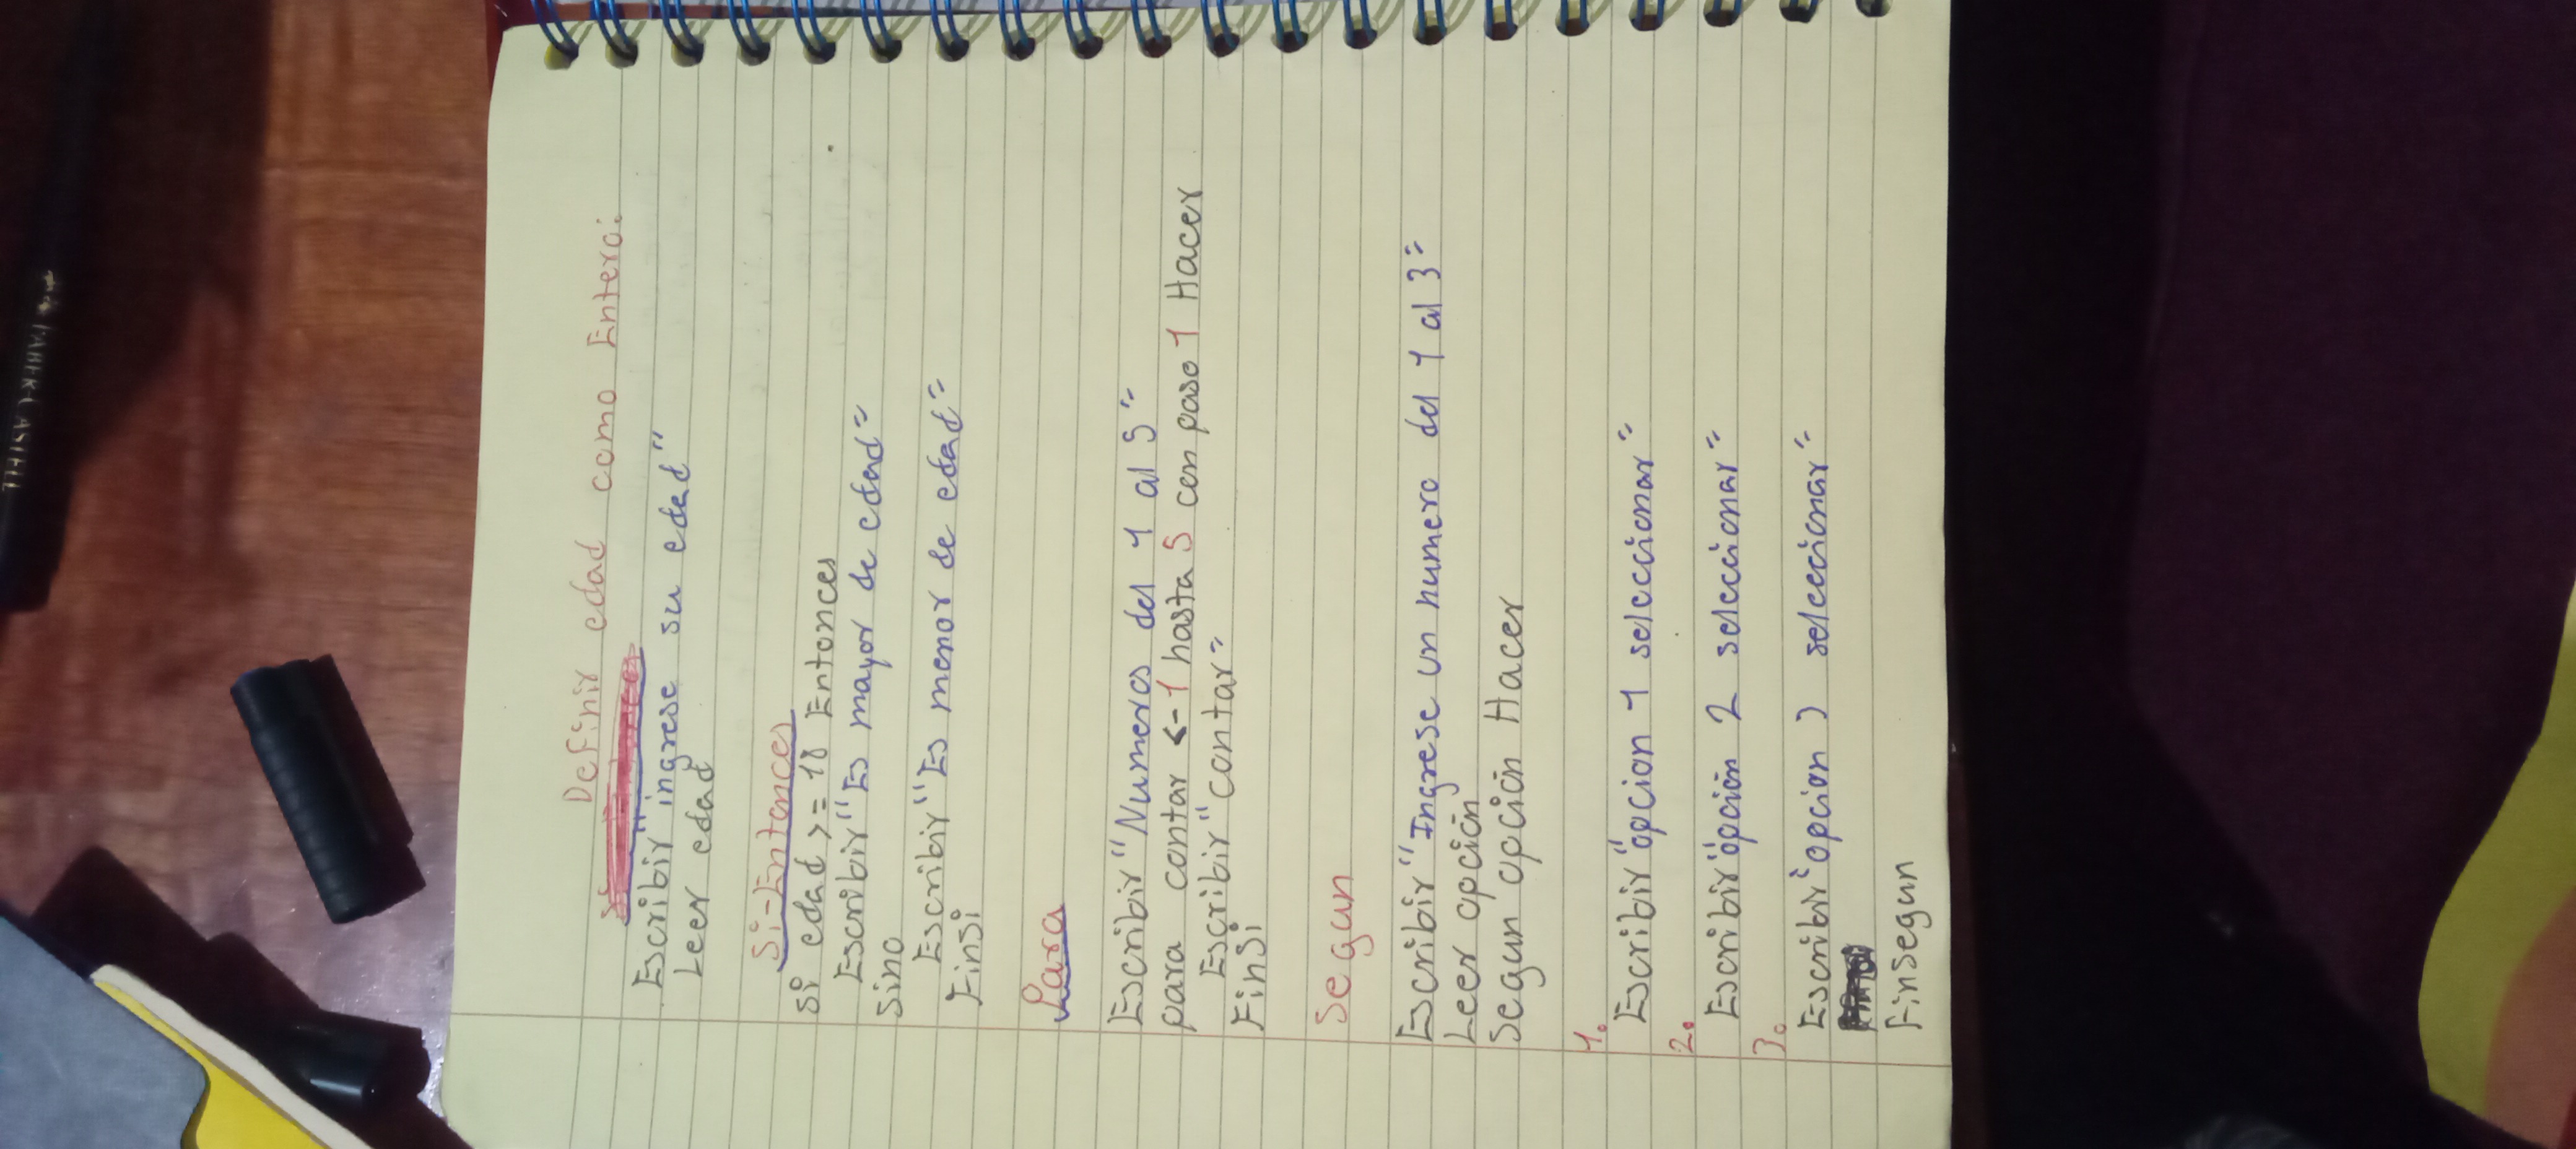 Definir edad como Entero:
Escribir "ingrese su edad"
Leer edad
Si-Entonces
si edad >= 18 Entonces
Escribir "Es mayor de edad"
Sino
Escribir "Es menor de edad"
Finsi
Para
Escribir "Numeros del 1 al 5"
para contar <-1 hasta 5 con paso 1 Hacer
Escribir "contar"
Finsi
Segun
Escribir "Ingrese un numero del 1 al 3"
Leer opción
Segun opción Hacer
1.
Escribir "opcion 1 seleccionar"
2.
Escribir "opción 2 seleccionar"
3.
Escribir "opcion 3 seleccionar"
Finsegun
FABER-CASTELL